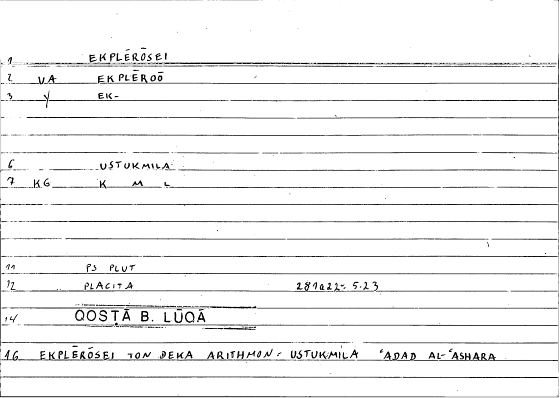 1 EKPLĒRŌSEI
2 VA EKPLĒROŌ
3 Y EK-
6 USTUKMILA
7 KG K M L
11 PS PLUT
12 PLACITA 281a22- 5.23
14 QOSṬĀ B. LŪQĀ
16 EKPLĒRŌSEI TON DEKA ARITHMON - USTUKMILA ʿADAD AL-ʿASHARA